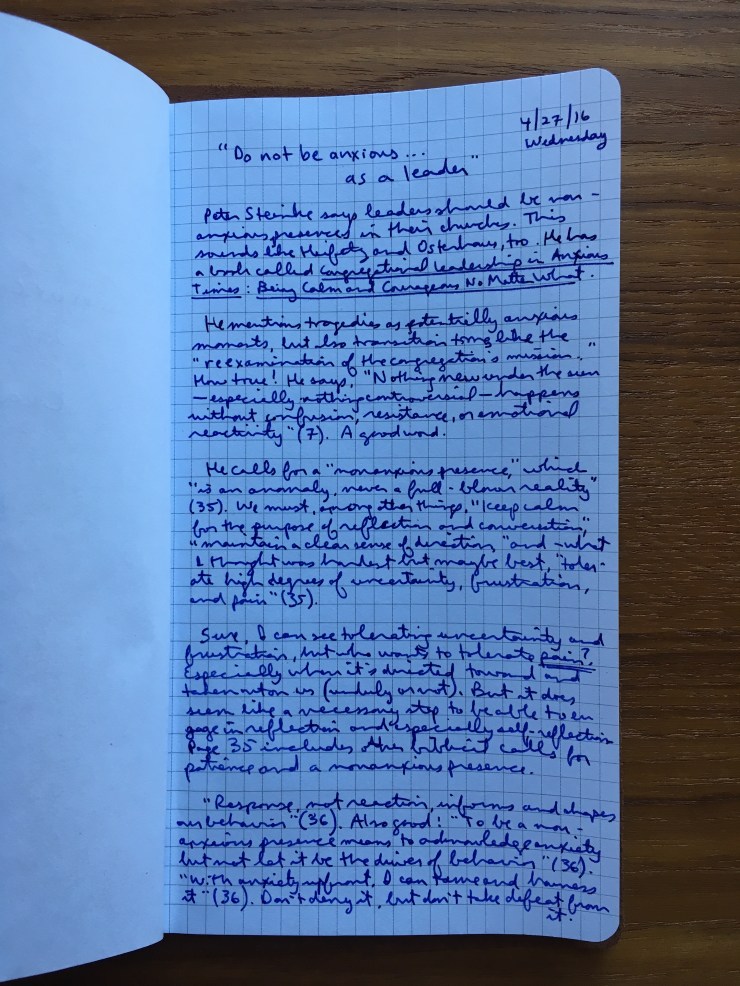 4/27/16
Wednesday
"Do not be anxious...
as a leader"
Peter Steinke says leaders should be non-
anxious presences in their churches. This
sounds like Heifetz and Ostenhaus, too. He has
a book called Congregational Leadership in Anxious
Times: Being Calm and Courageous No Matter What.
He mentions tragedies as potentially anxious
moments, but also transition times like the
"reexamination of the congregation's mission."
How true! He says, "Nothing new under the sun
—especially nothing controversial—happens
without confusion, resistance, or emotional
reactivity" (7). A good word.
He calls for a "nonanxious presence," which
"is an anomaly, never a full-blown reality"
(35). We must, among other things, "keep calm
for the purpose of reflection and conversation,"
"maintain a clear sense of direction," and—what
I thought was hardest but maybe best, "toler-
ate high degrees of uncertainty, frustration,
and pain" (35).
Sure, I can see tolerating uncertainty and
frustration, but who wants to tolerate pain?
Especially when it's directed toward and
taken out on us (unduly or not). But it does
seem like a necessary step to be able to en
gage in reflection and especially self-reflection
Page 35 includes other biblical calls for
patience and a nonanxious presence.
"Response, not reaction, informs and shapes
our behavior" (36). Also good! "To be a non-
anxious presence means to acknowledge anxiety
but not let it be the driver of behavior" (36).
"With anxiety upfront, I can tame and harness
it" (36). Don't deny it, but don't take defeat from
it.